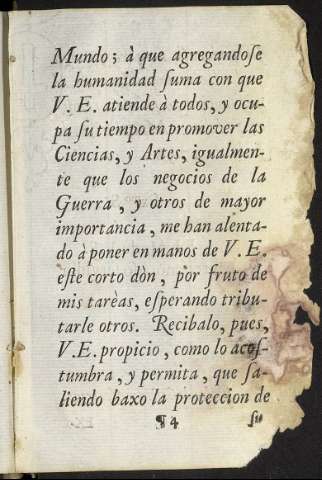 Mundo; à que agregandoſe
la humanidad ſuma con que
V. E. atiende à todos, y ocu-
pa ſu tiempo en promover las
Ciencias, y Artes, igualmen-
te que los negocios de la
Guerra, y otros de mayor
importancia, me han alenta-
do à poner en manos de V. E.
eſte corto dòn, por fruto de
mis tarèas, eſperando tribu-
tarle otros. Recibalo, pues,
V. E. propicio, como lo acoſ-
tumbra, y permita, que ſa-
liendo baxo la proteccion de
¶4 ſu